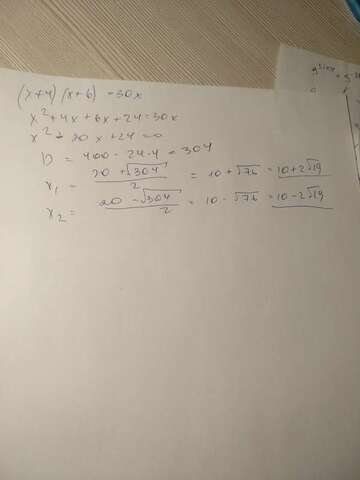 (x+4)(x+6) = 30x
x²+4x+6x+24=30x
x²-20x+24=0
D = 400-24·4 = 304
x₁ = (20+√304)/2 = 10+√76 = 10+2√19
x₂ = (20-√304)/2 = 10-√76 = 10-2√19